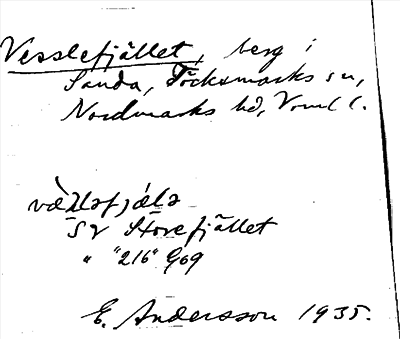 Vesslefjället, berg i
Sanda, Töcksmarks sn,
Nordmarks hd, Vrml l.
væ̀slǝfjælǝ
SV Storefjället
" "216" G09
E. Andersson 1935.